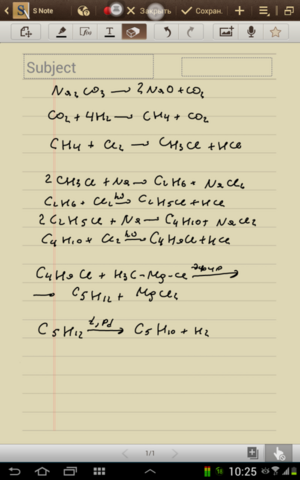 S Note
Закрыть
Сохран.
Subject
Na₂CO₃ → 2NaO + CO₂
CO₂ + 4H₂ → CH₄ + CO₂
CH₄ + Cl₂ → CH₃Cl + HCl
2CH₃Cl + Na → C₂H₆ + NaCl₂
C₂H₆ + Cl₂ hν→ C₂H₅Cl + HCl
2C₂H₅Cl + Na → C₄H₁₀ + NaCl₂
C₄H₁₀ + Cl₂ hν→ C₄H₉Cl + HCl
C₄H₉Cl + H₃C-Mg-Cl эфир→
→ C₅H₁₂ + MgCl₂
C₅H₁₂ t, Pd→ C₅H₁₀ + H₂
1/1
10:25